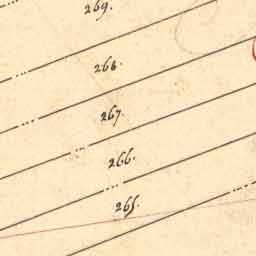 269.
268.
267.
266.
265.